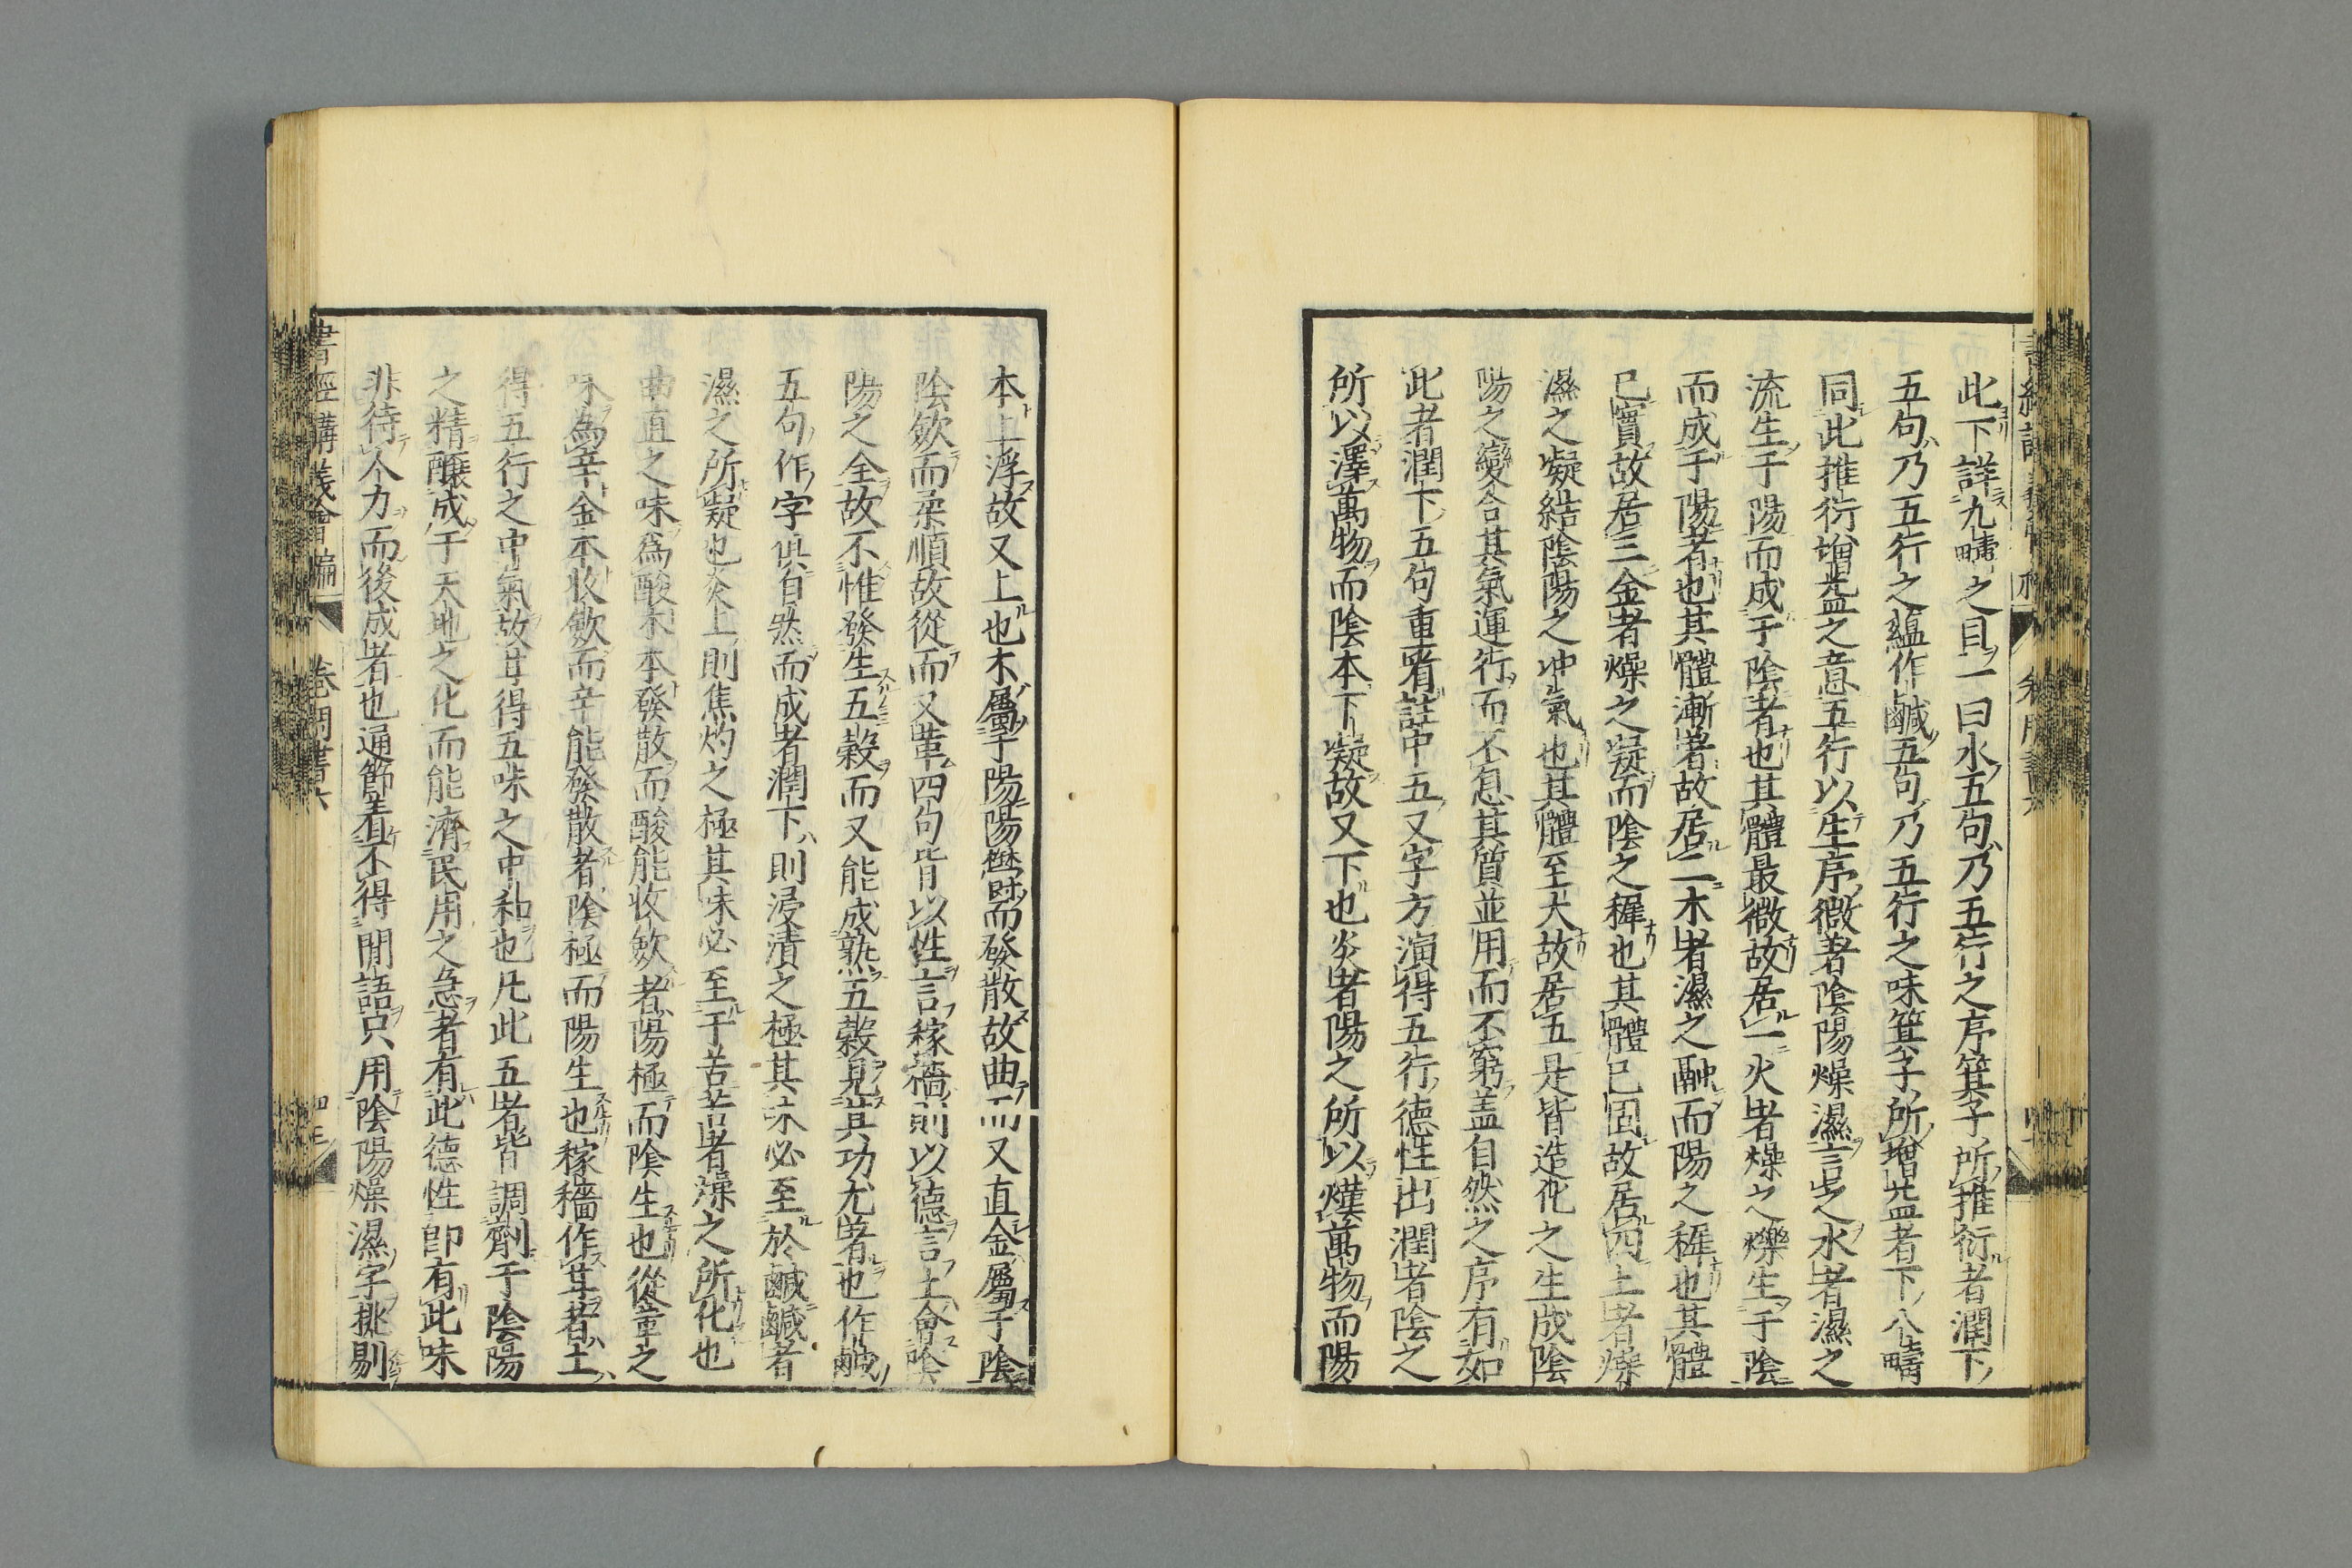 此下詳九疇之目一曰水五句乃五行之序箕子所推衍者潤下
五句乃五行之蘊作鹹五句乃五行之味箕子所增益者下八疇
同此推衍增益之意五行以生序微著陰陽燥濕言之水者濕之
流生于陽而成于陰者也其體最微故居一火者燥之爍生于陰
而成于陽者也其體漸著故居二木者濕之融而陽之穉也其體
已實故居三金者燥之凝而陰之穉也其體已固故居四土者燥
濕之凝結陰陽之冲氣也其體至大故居五是皆造化之生成陰
陽之變合其氣運行而不息其質並用而不窮盖自然之序有如
此者潤下五句重看註中五又字方演得五行德性出潤者陰之
所以澤萬物而陰本下凝故又下也炎者陽之所以熯萬物而陽
本上浮故又上也木屬于陽陽㷱時而發散故曲而又直金屬于陰
陰斂而柔順故從而又革四句皆以性言稼穡則以德言土會陰
陽之全故不惟發生五穀而又能成熟五穀見其功尤著也作鹹
五句作字俱自然而成者潤下則浸漬之極其味必至於鹹鹹者
濕之所凝也炎上則焦灼之極其味必至于苦苦者燥之所化也
曲直之味為酸木本發散而酸能收斂者陽極而陰生也從革之
味為辛金本收斂而辛能發散者陰極而陽生也稼穡作甘者土
得五行之中氣故甘得五味之中和也凡此五者皆調劑于陰陽
之精釀成于天地之化而能濟民用之急者有此德性即有此味
非待人力而後成者也通節着不得閒語只用陰陽燥濕字挑剔
書經講義會編 卷 周書六